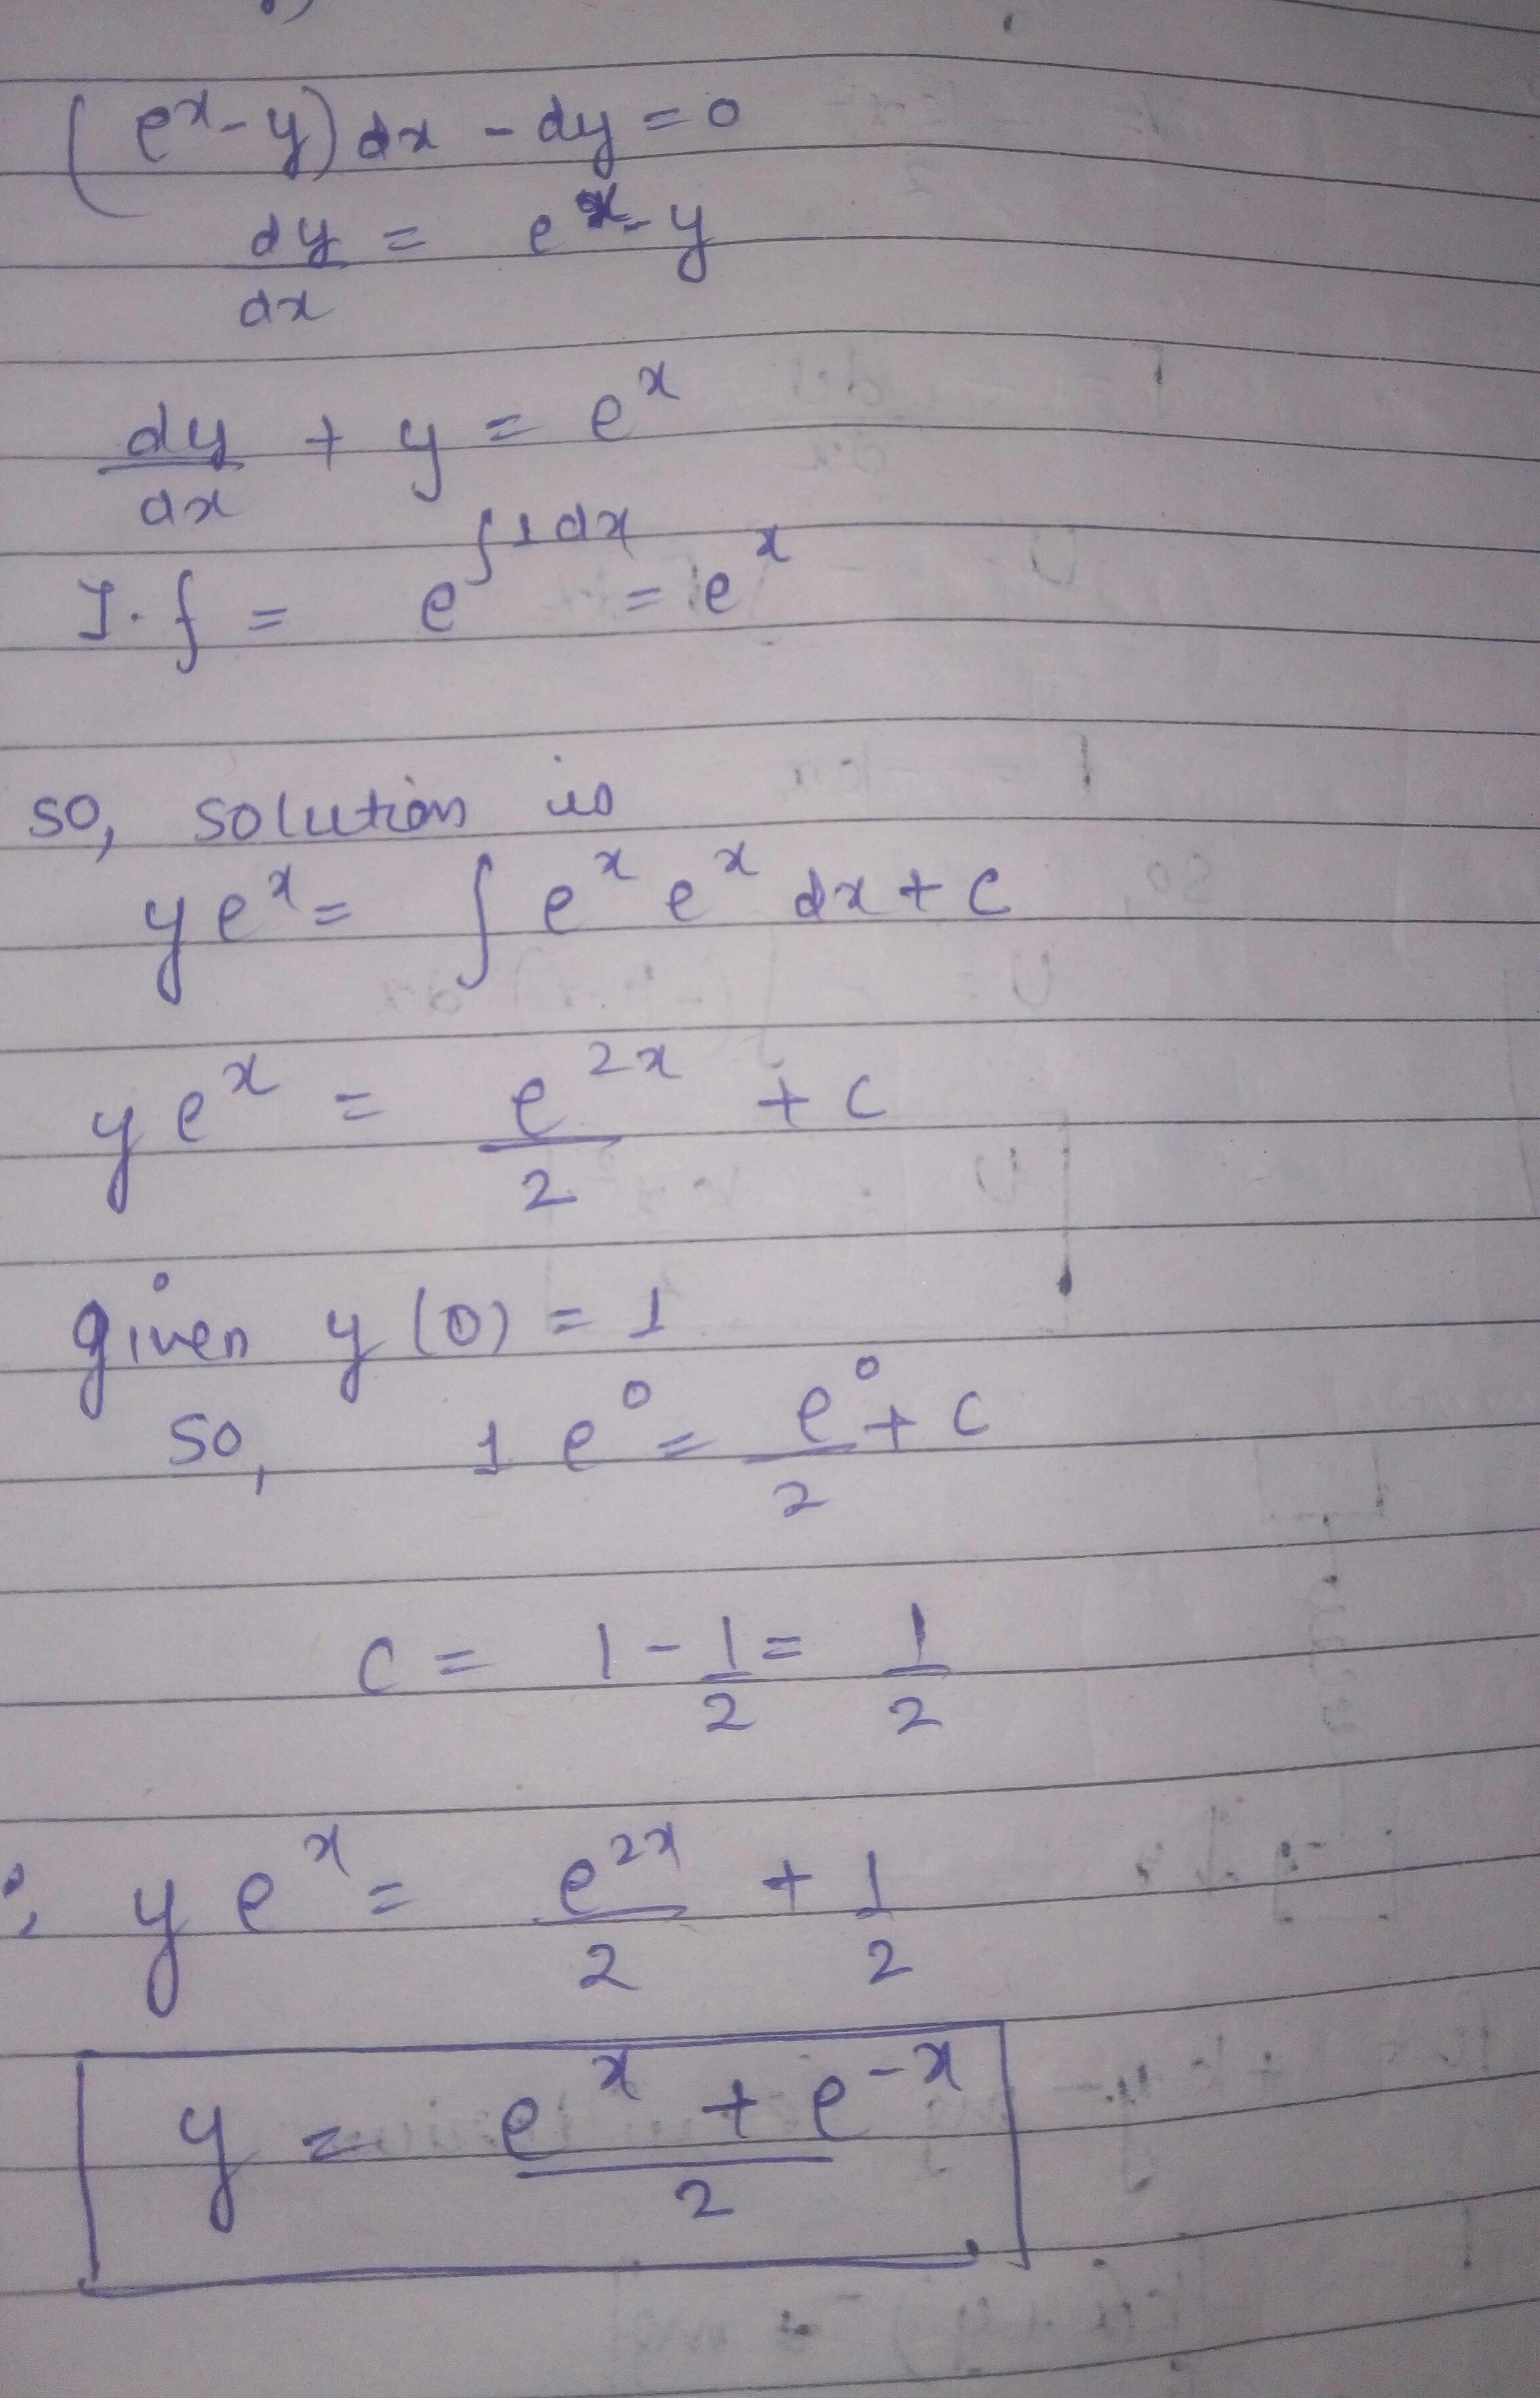 (e^x - y) dx - dy = 0
dy/dx = e^x - y
dy/dx + y = e^x
I.f = e^∫1dx = e^x
so, solution is
y e^x = ∫ e^x e^x dx + c
y e^x = e^2x/2 + c
given y(0) = 1
so, 1 e^0 = e^0/2 + c
c = 1 - 1/2 = 1/2
y e^x = e^2x/2 + 1/2
y = e^x + e^-x/2